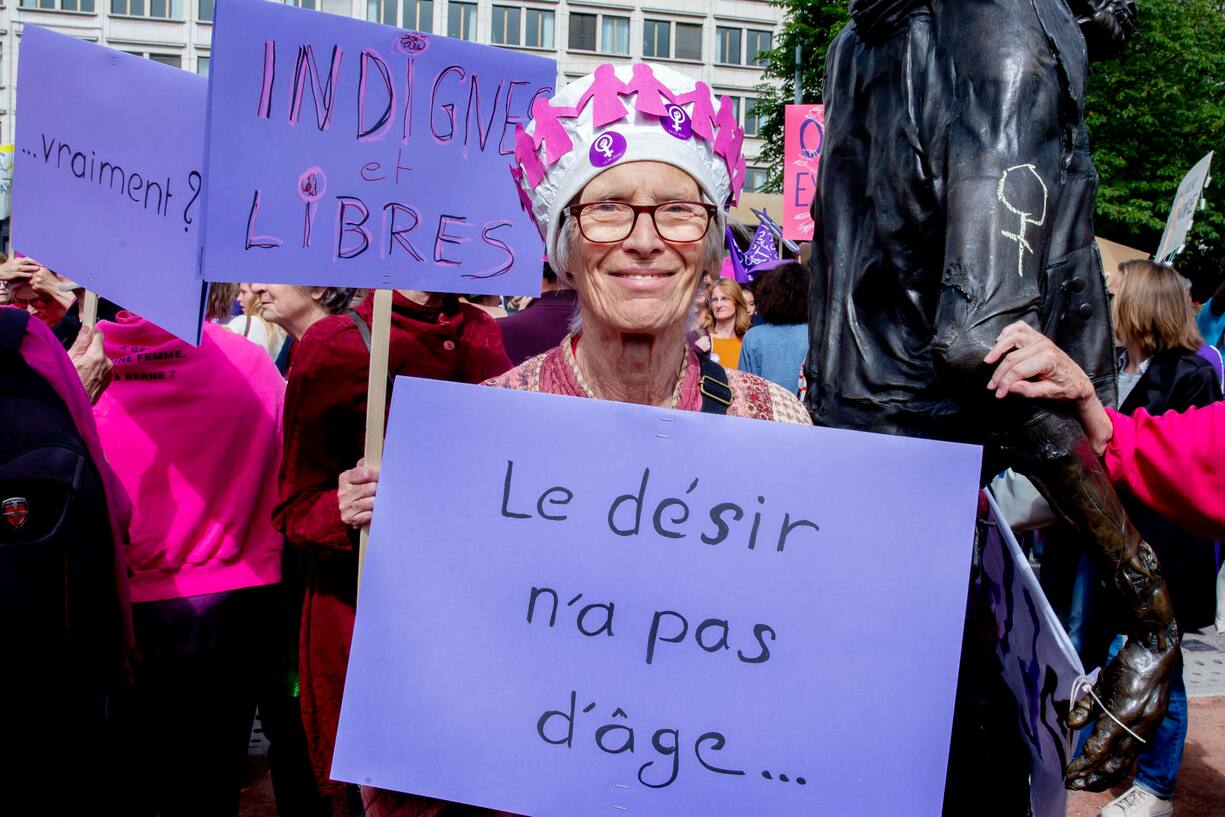 ...vraiment?
INDIGNES
et
LIBRES
NE FEMME.
A BERNE ?
Le désir
n'a pas
d'âge...